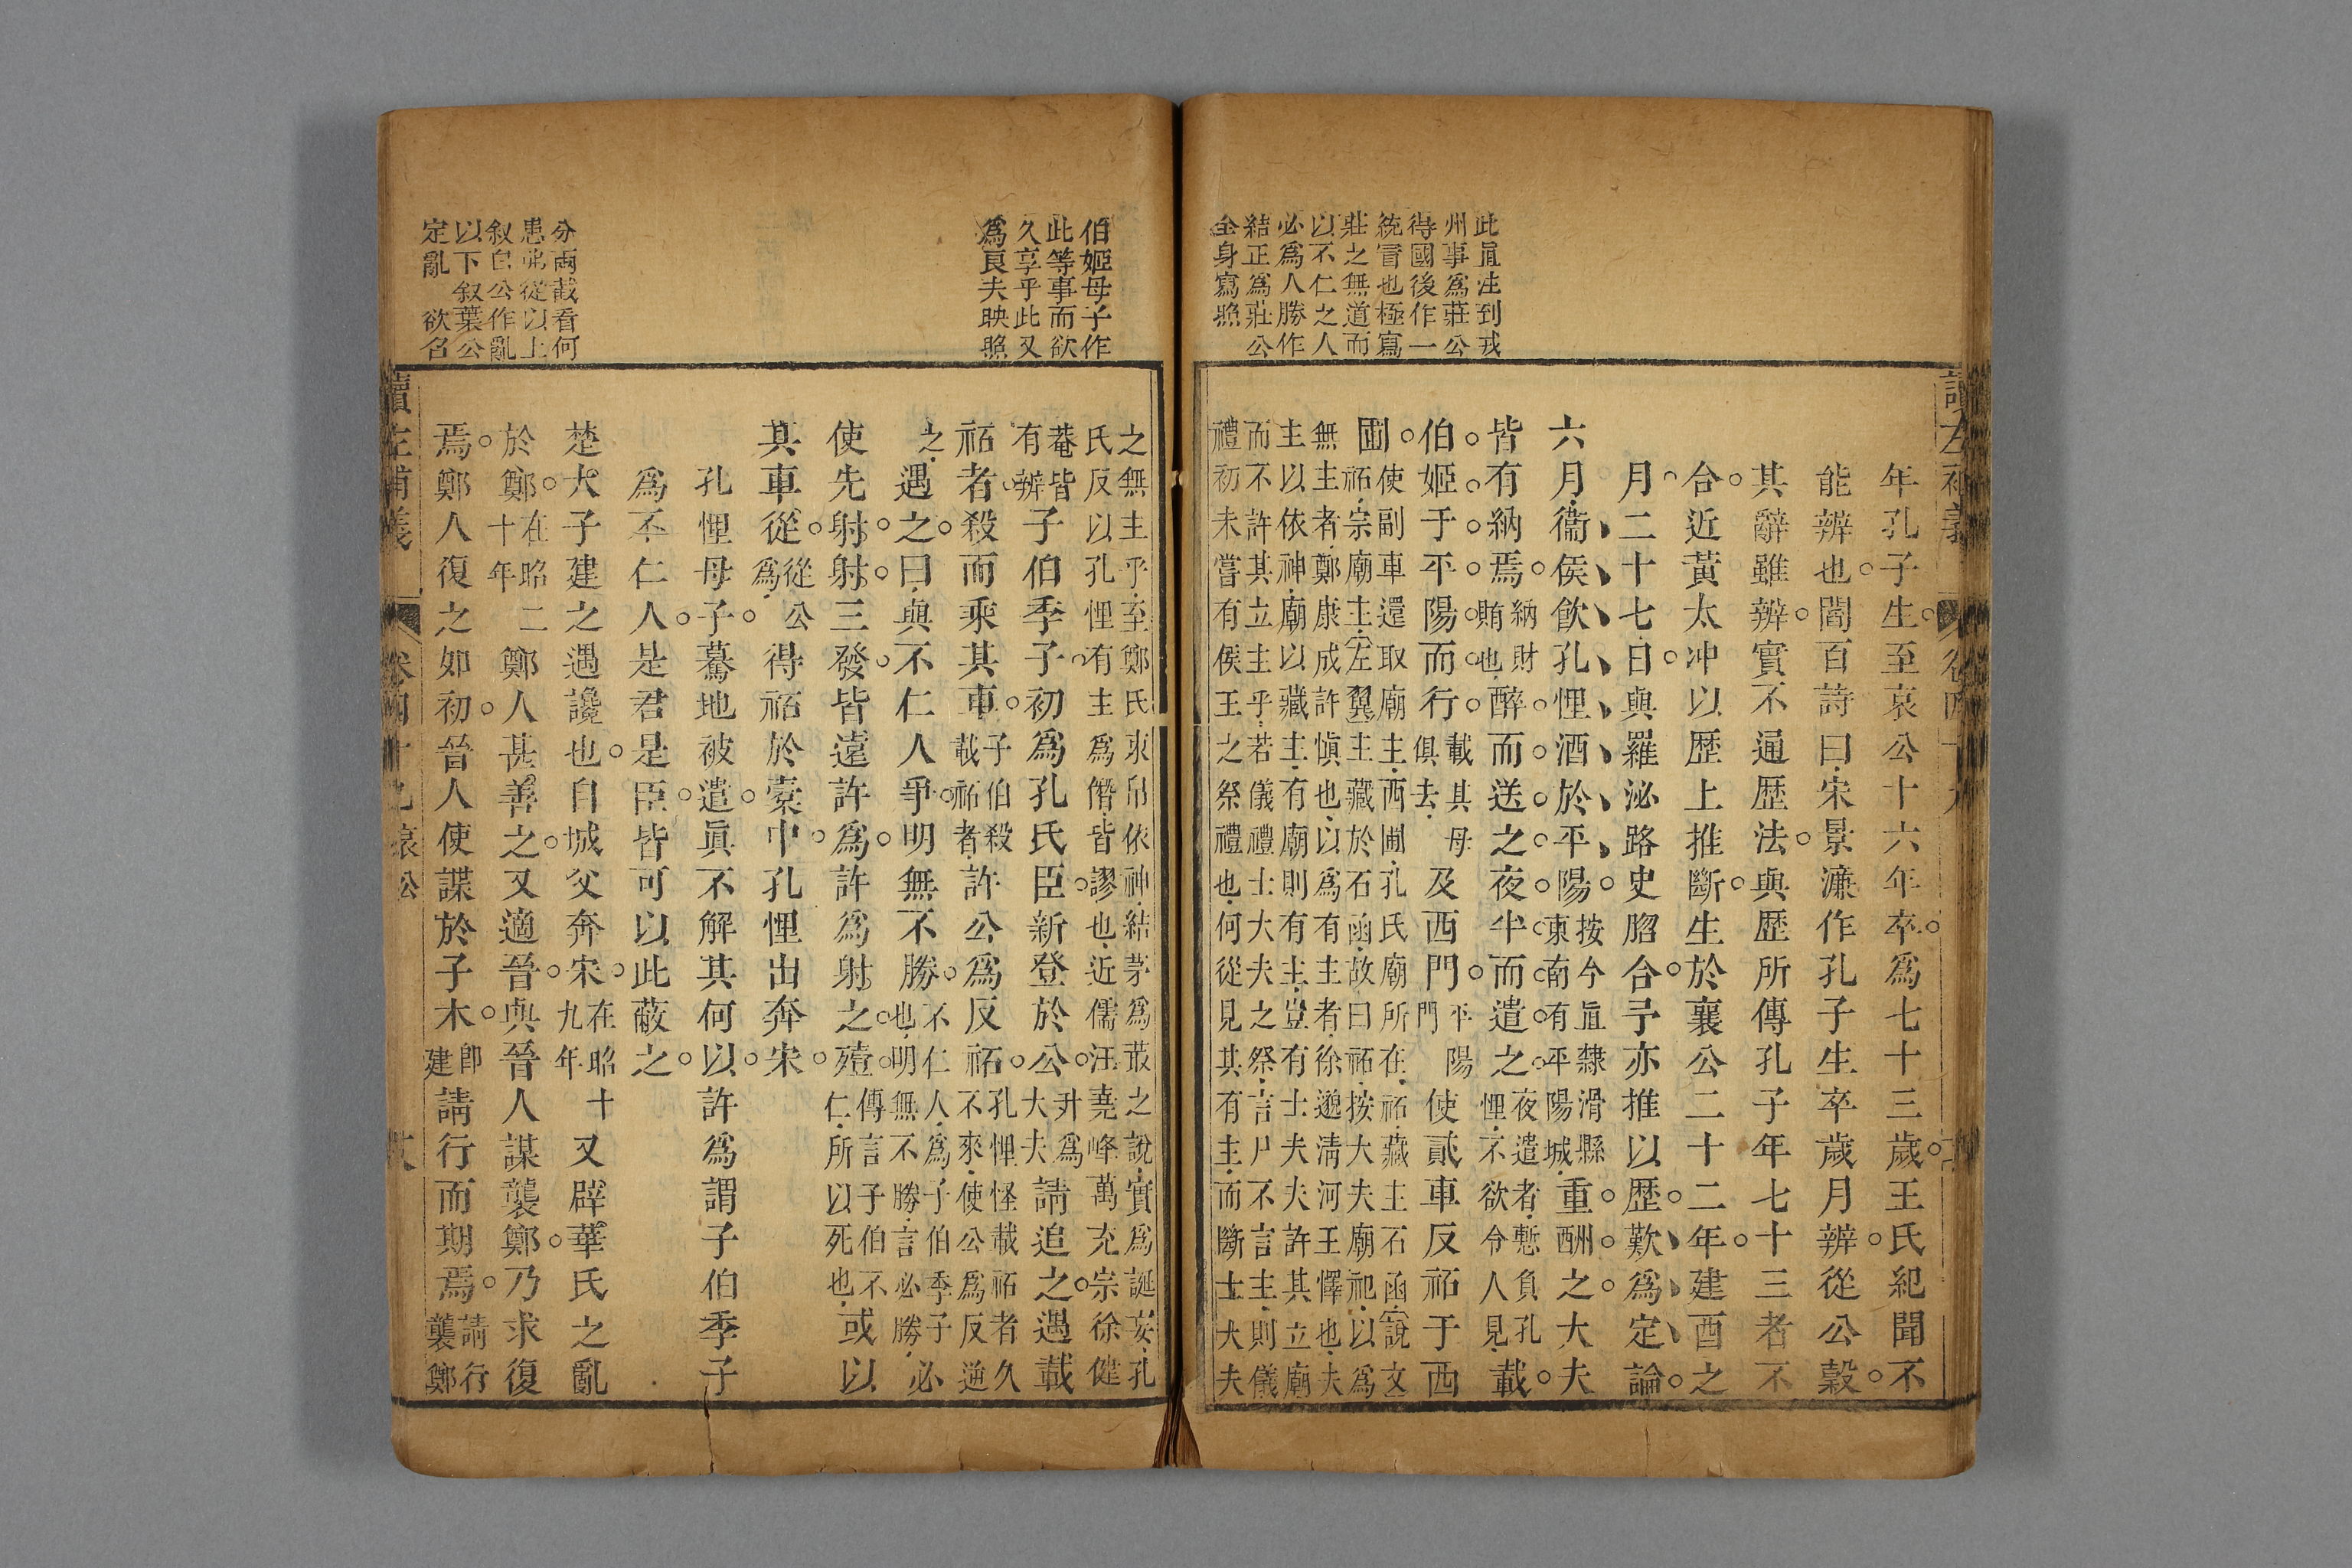 此直注到戎
州事爲莊公
得國後作一
統冒也極寫
莊之無道而
以不仁之人
必爲人勝作
結正爲莊公
全身寫照
年孔子生至哀公十六年卒爲七十三歲王氏紀聞不
能辨也閻百詩曰宋景濂作孔子生卒歲月辨從公穀
其辭雖辨實不通歷法與歷所傳孔子年七十三者不
合近黃太冲以歷上推斷生於襄公二十二年建酉之
月二十七日與羅泌路史脗合予亦推以歷歎爲定論
六月衞侯飮孔悝酒於平陽按今直隸滑縣東南有平陽城重酬之大夫
皆有納焉納財賄也醉而送之夜半而遣之夜遣者慙負孔悝不欲令人見載
伯姬于平陽而行載其母俱去及西門平陽門使貳車反祏于西
圃使副車還取廟主西圃孔氏廟所在祏藏主石函說文
祏宗廟主左翼主藏於石函故曰祏按大夫廟祀以爲
無主者鄭康成許愼也以爲有主者徐邈淸河王懌也夫
主以依神廟以藏主有廟則有主豈有士夫夫許其立廟
而不許其立主乎若儀禮士大夫之祭言尸不言主則儀
禮初未嘗有侯王之祭禮也何從見其有主而斷士大夫
之無主乎至鄭氏束帛依神結茅爲菆之說實爲誕妄孔
氏反以孔悝有主爲僭皆謬也近儒汪堯峰萬充宗徐健
菴皆有辨子伯季子初爲孔氏臣新登於公升爲大夫請追之遇載
祏者殺而乘其車子伯殺載祏者許公爲反祏孔悝怪載祏者久不來使公爲反逆
之遇之曰與不仁人爭明無不勝不仁人爲子伯季子也明無不勝言必勝必
使先射射三發皆遠許爲許爲射之殪傳言子伯不仁所以死也或以
其車從從公爲得祏於橐中孔悝出奔宋
孔悝母子驀地被遣眞不解其何以許爲謂子伯季子
爲不仁人是君是臣皆可以此蔽之
楚大子建之遇讒也自城父奔宋在昭十九年又辟華氏之亂
於鄭在昭二十年鄭人甚善之又適晉與晉人謀襲鄭乃求復
焉鄭人復之如初晉人使諜於子木卽建請行而期焉請行襲鄭
伯姬母子作
此等事而欲
久享乎此又
爲良夫映照
分兩截看何
患弗從以上
叙白公作亂
以下叙葉公
定亂　欲召
讀左補義
卷四十九 哀公